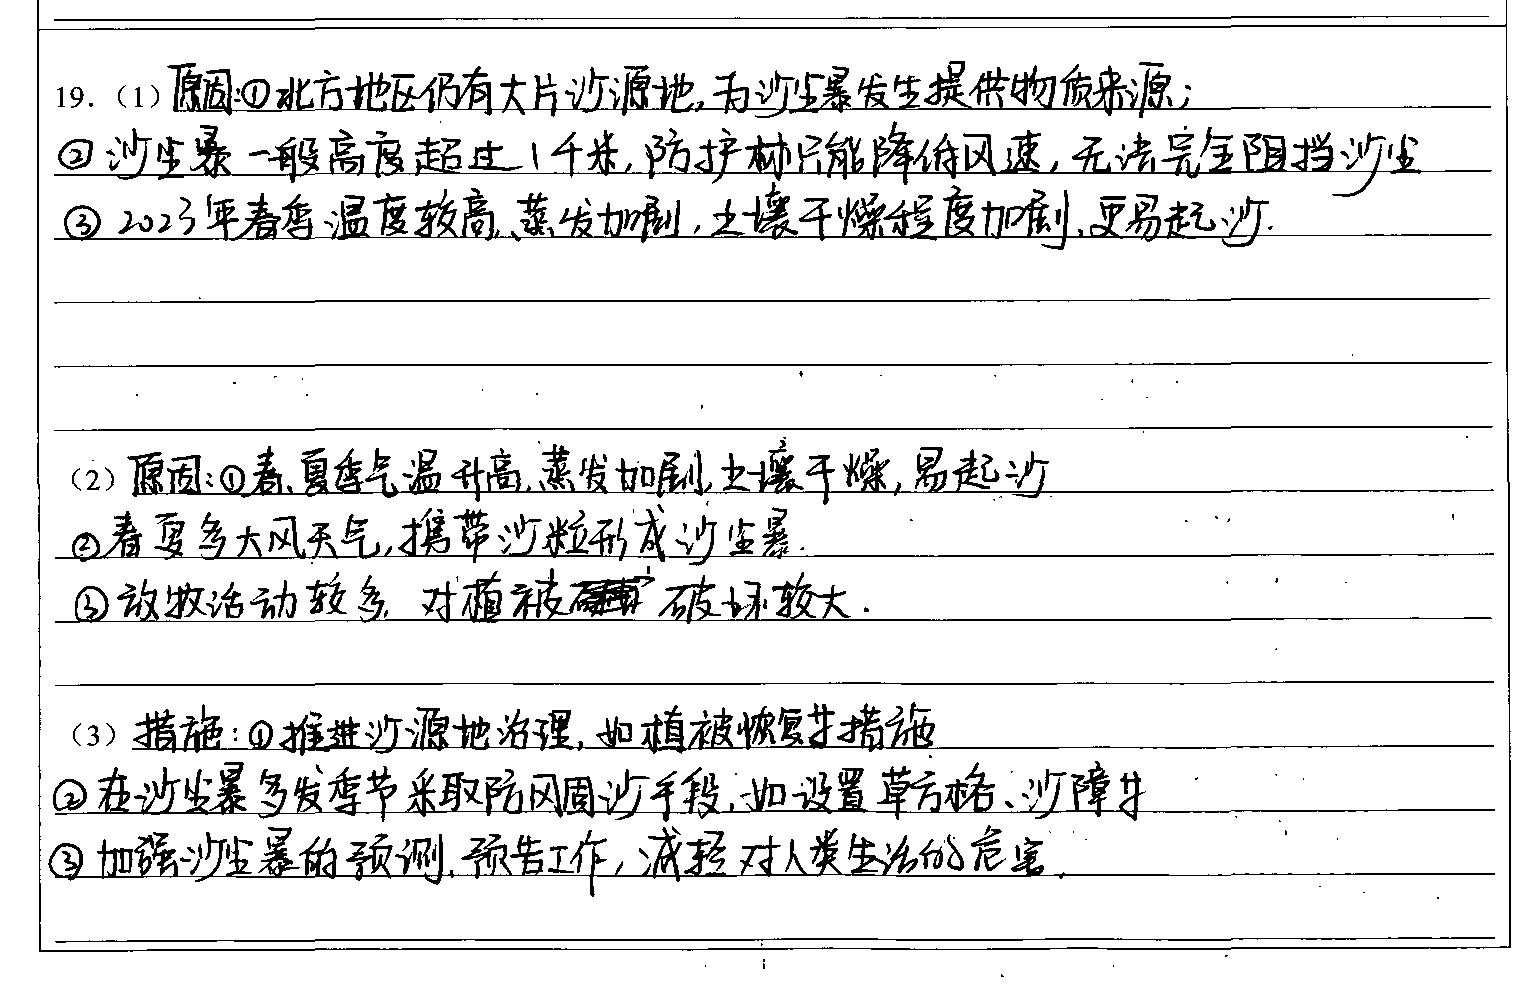 19.（1）原因:①北方地区仍有大片沙源地,为沙尘暴发生提供物质来源;
②沙尘暴一般高度超过1千米,防护林只能降低风速,无法完全阻挡沙尘
③2023年春季温度较高,蒸发加剧,土壤干燥程度加剧,更易起沙.
（2）原因:①春、夏季气温升高,蒸发加剧,土壤干燥,易起沙
②春夏多大风天气,携带沙粒形成沙尘暴.
③放牧活动较多,对植被破坏较大.
（3）措施:①推进沙源地治理,如植被恢复等措施
②在沙尘暴多发季节采取防风固沙手段,如设置草方格、沙障等
③加强沙尘暴的预测、预告工作,减轻对人类生活的危害.